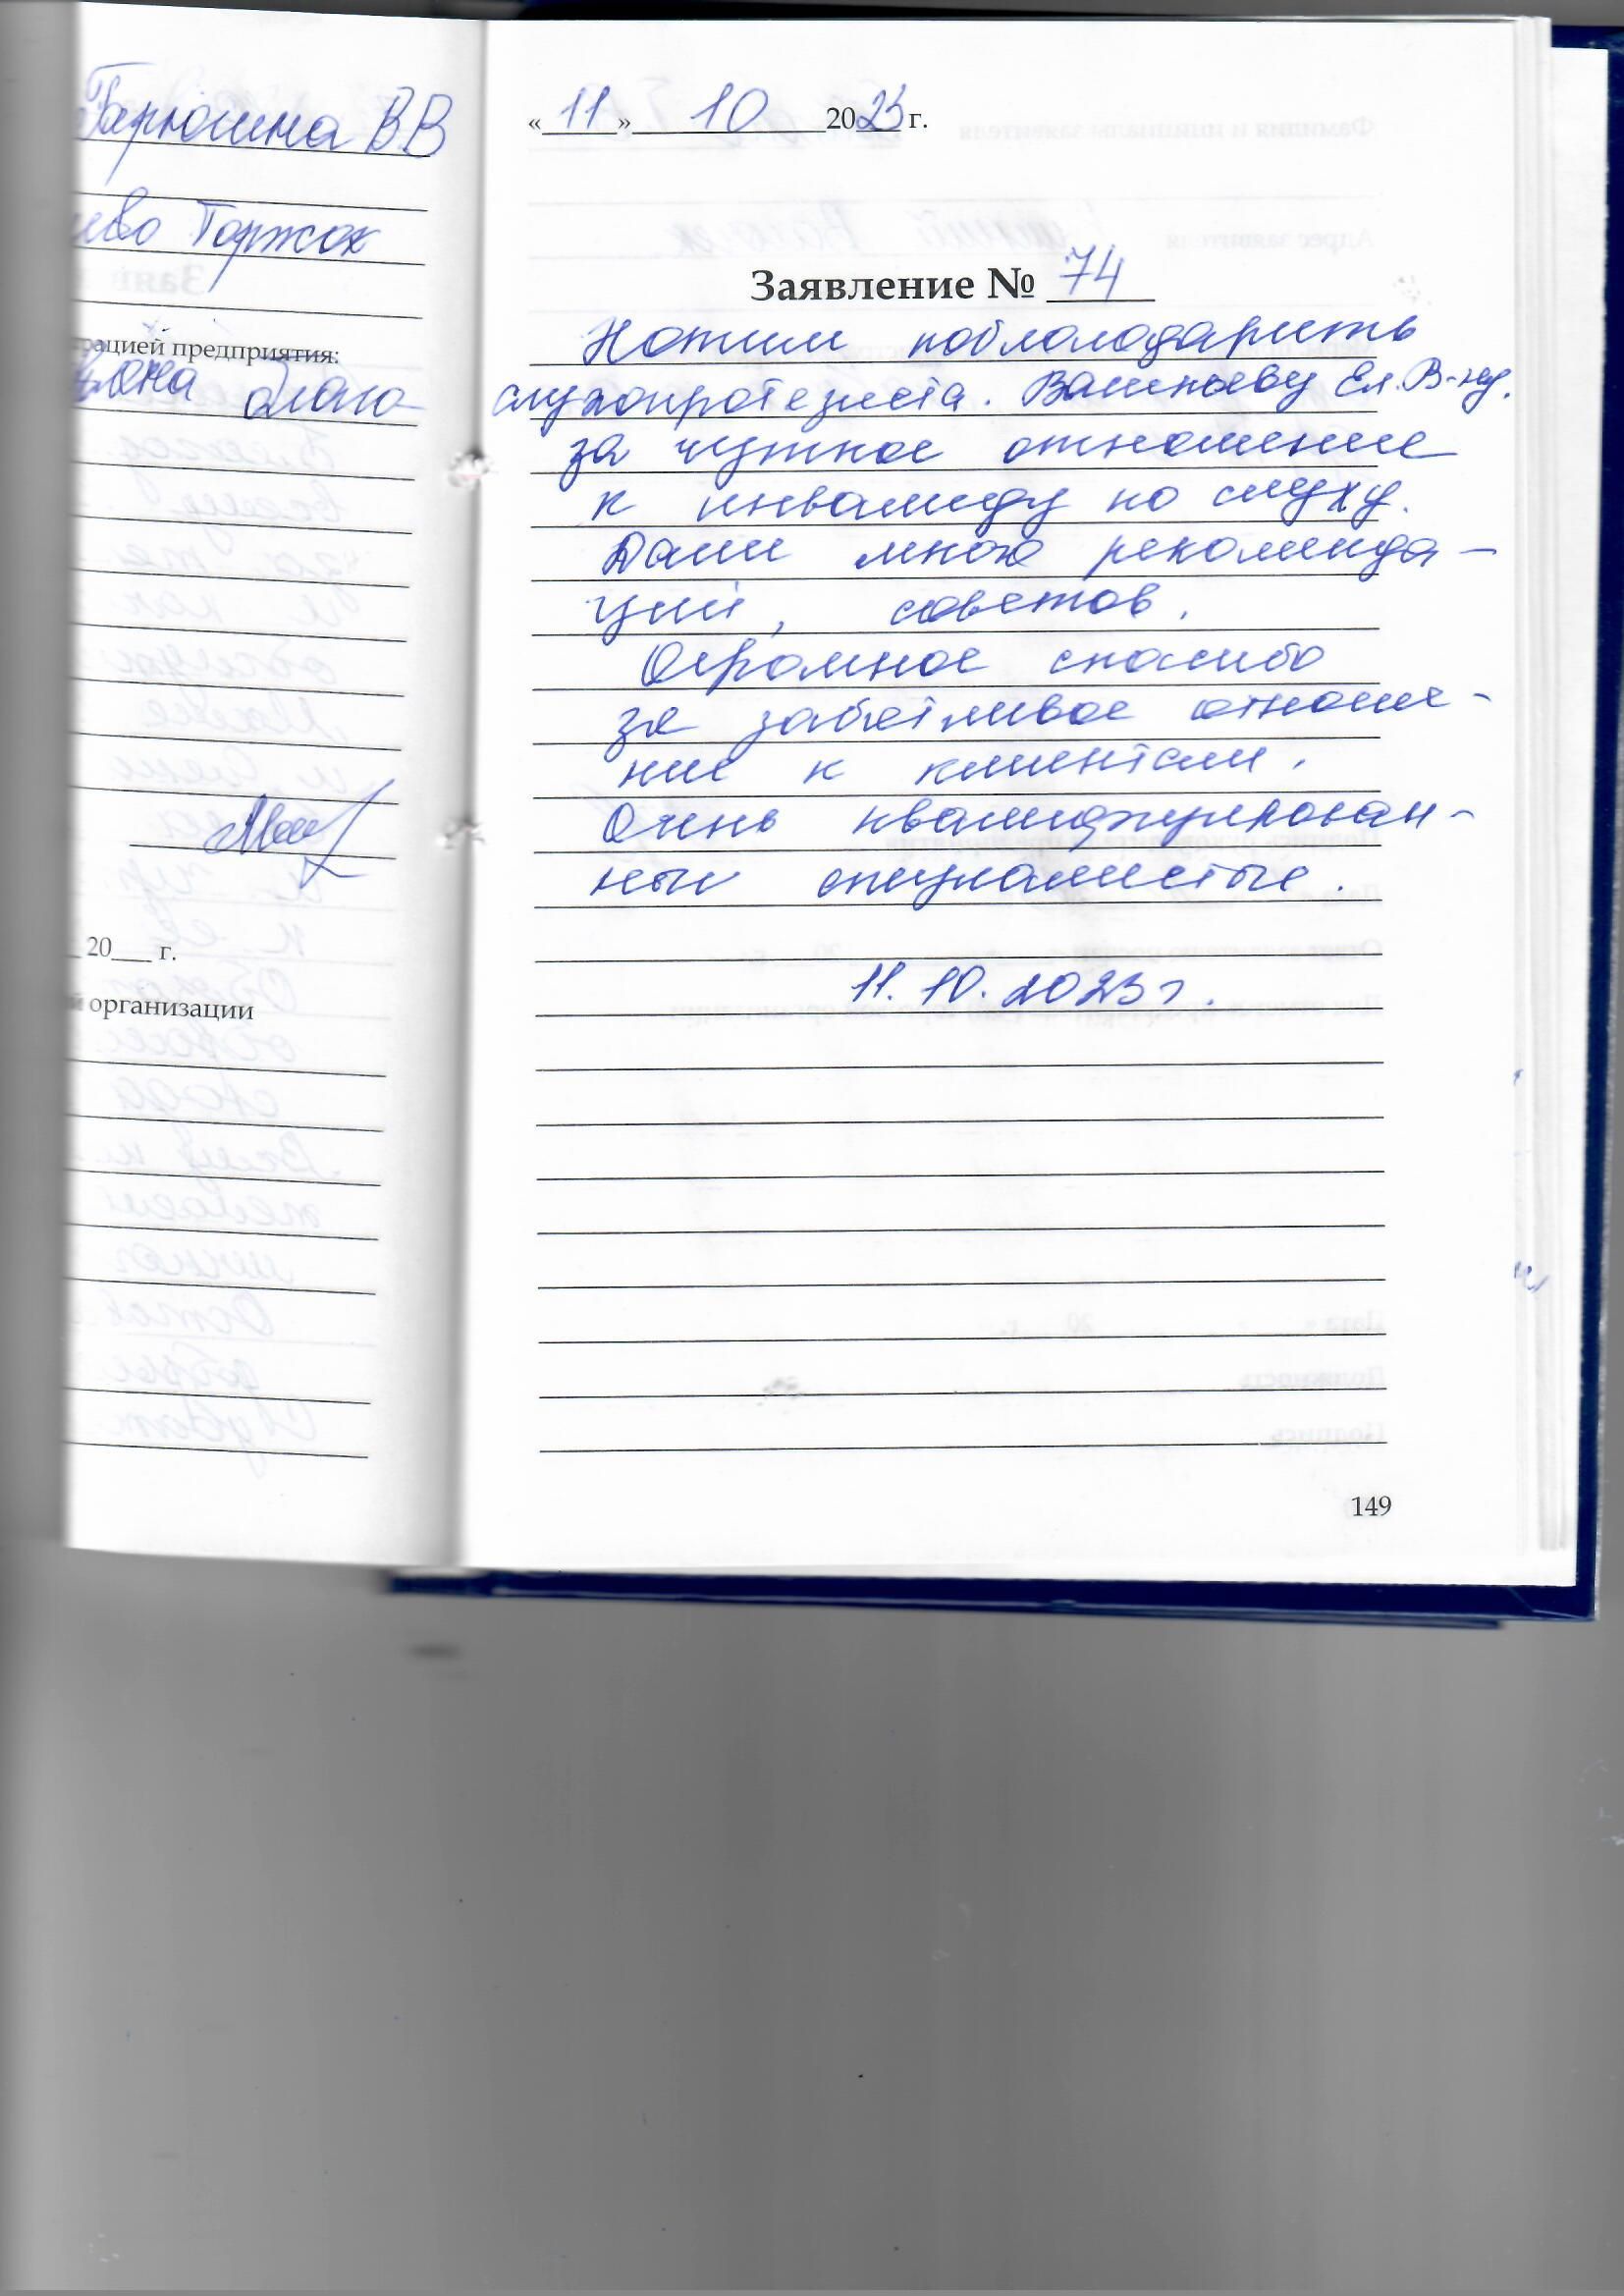 Гарюшина В.В
Торжок
рацией предприятия:
20___ г.
й организации
«11» 10 2023 г.
Заявление № 74
Хотим поблагодарить
слухопротезиста. Ел. В-ну.
за чуткое отношение
к инвалиду по слуху.
Дали много рекоменда-
ций, советов.
Огромное спасибо
за заботливое отноше-
ние к клиентам.
Очень квалифицирован-
ные специалисты.
11.10.2023 г.
149